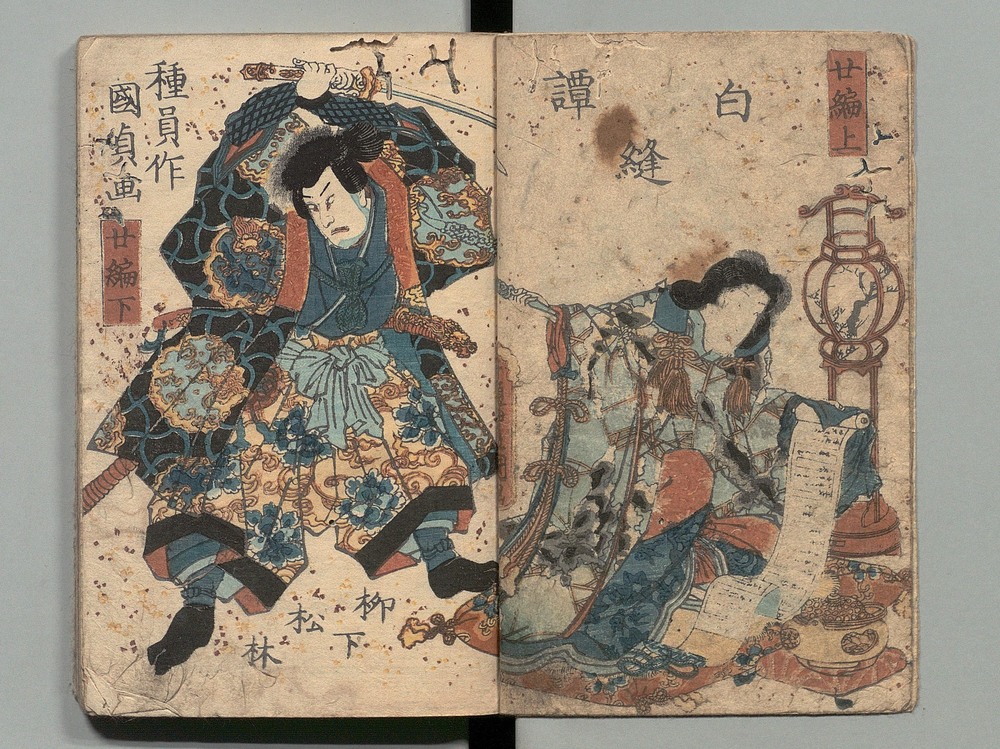 廿編上
白
縫
譚
種員作
國貞画
廿編下
柳
下
松
林